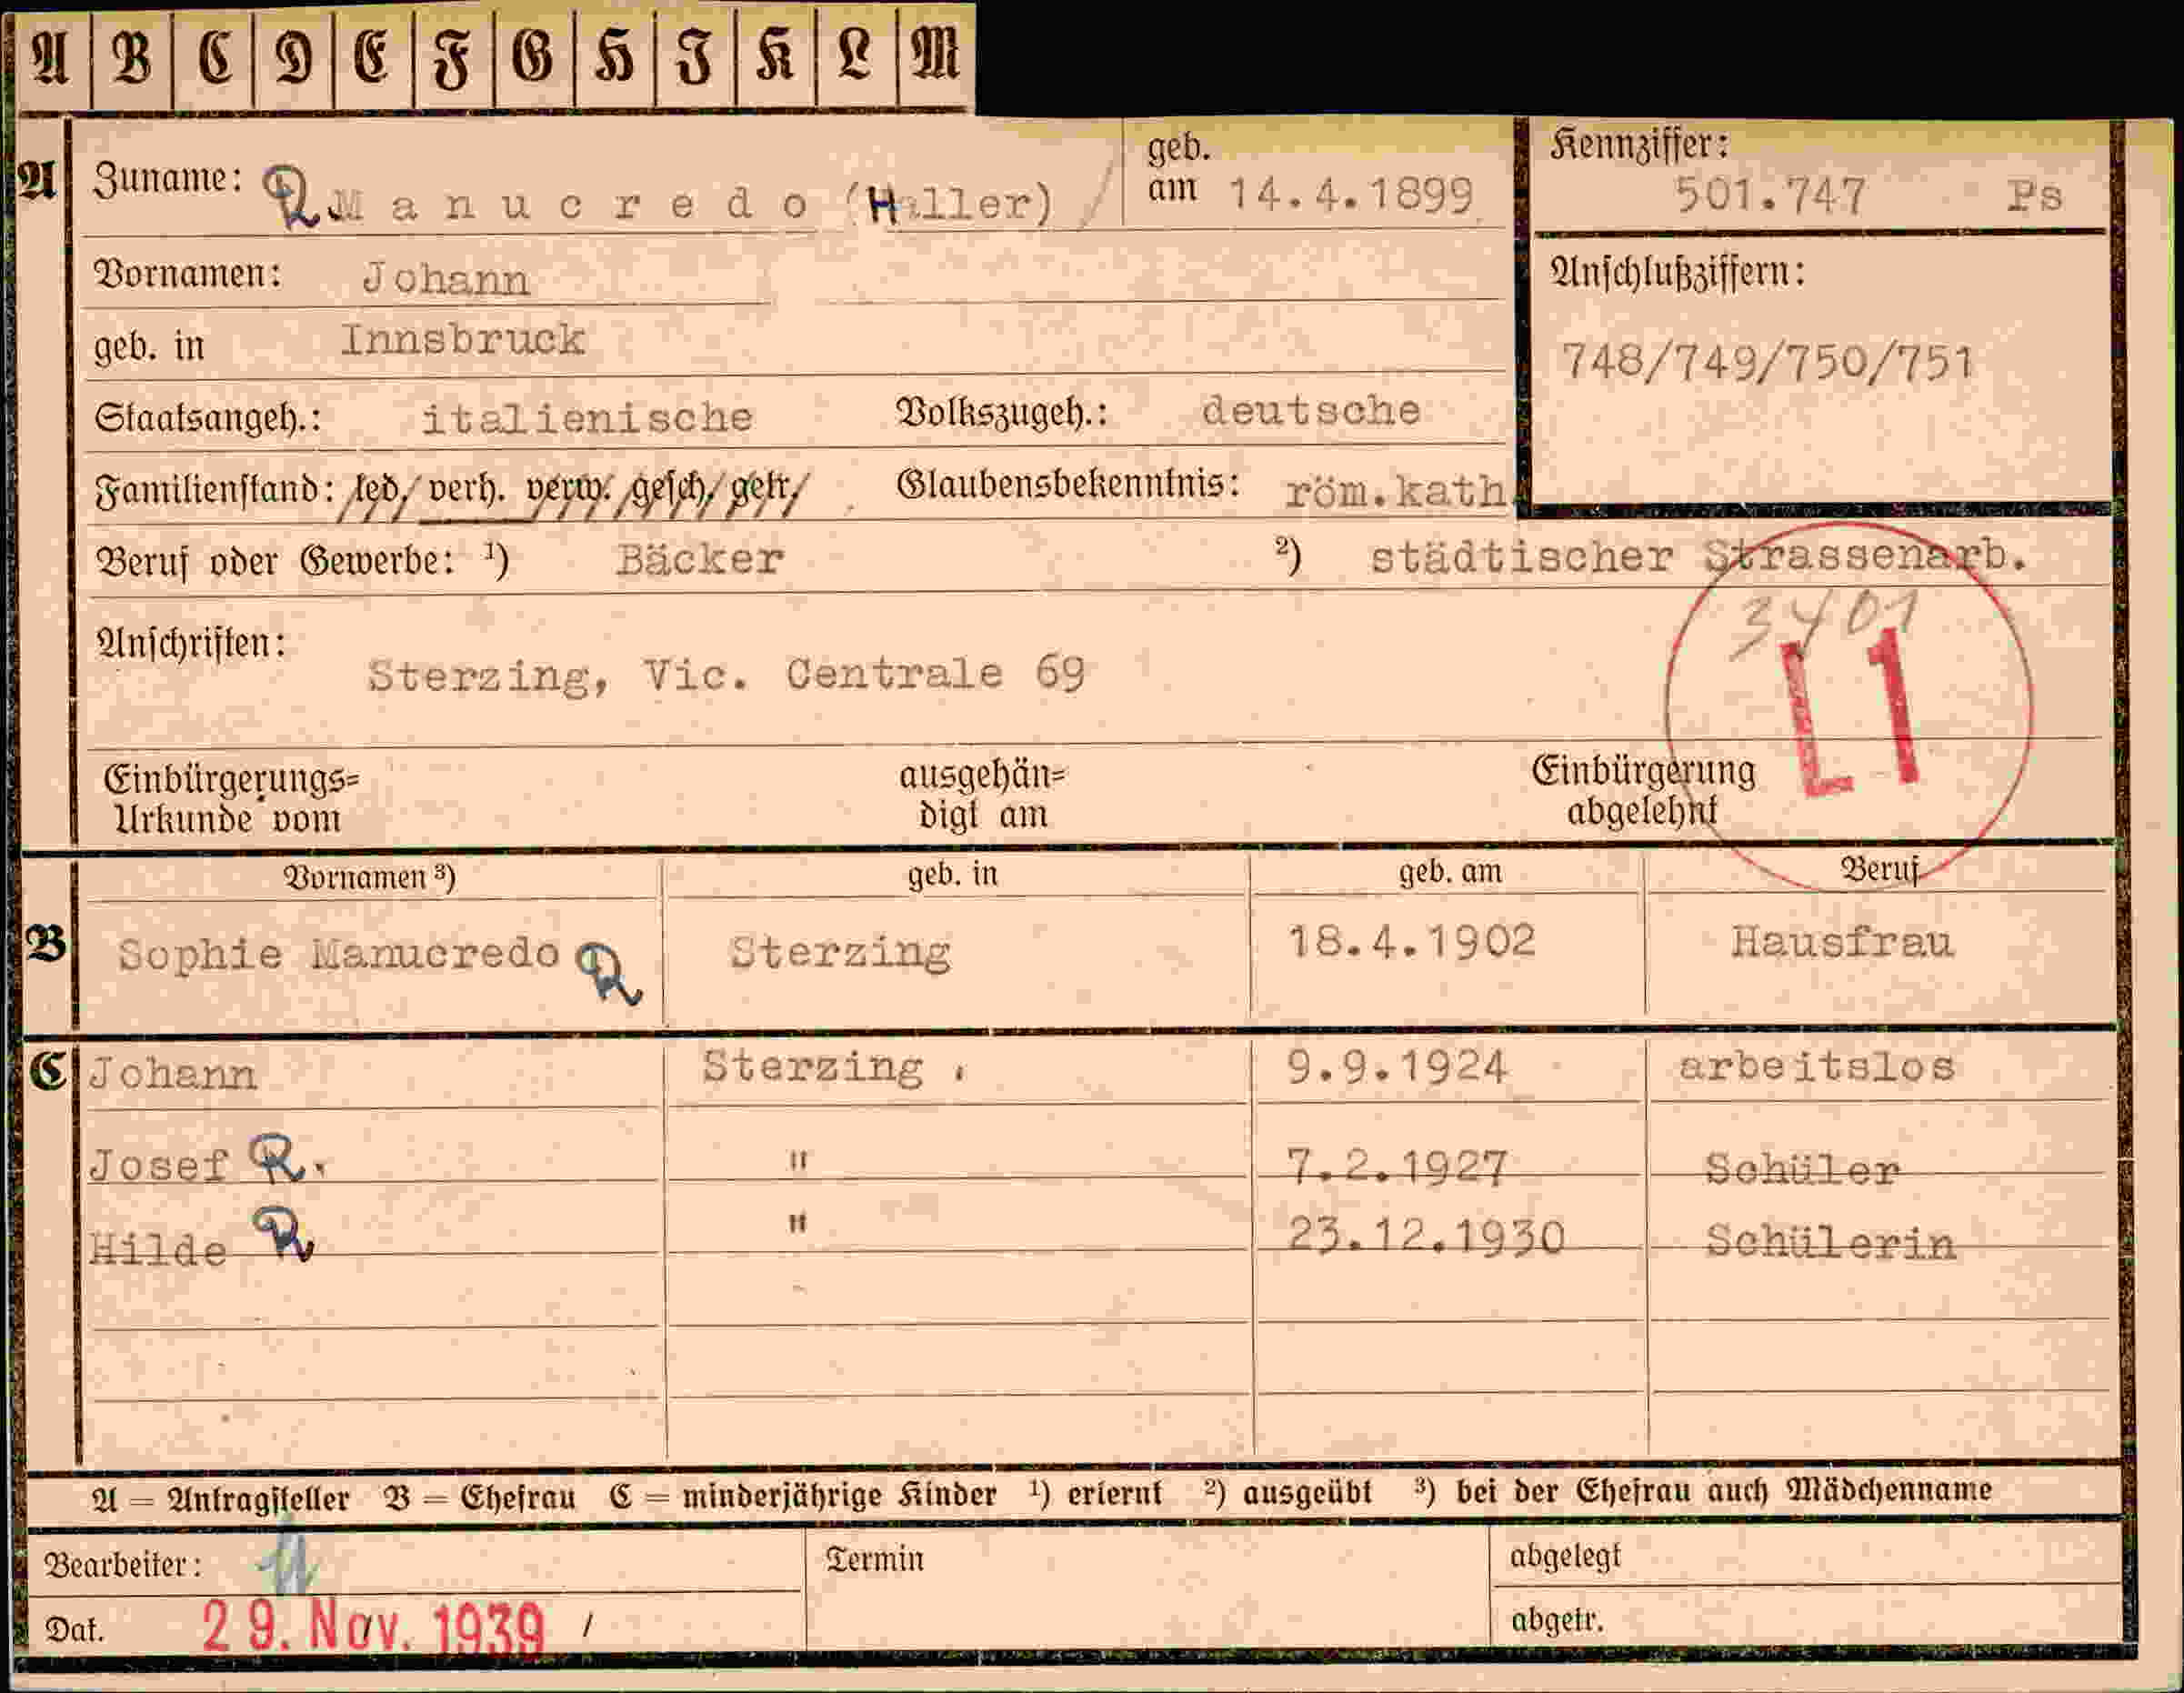 A B C D E F G H I K L M
A Zuname: R Manucredo (Haller) geb. am 14.4.1899 Kennziffer: 501.747 Ps
Vornamen: Johann Anschlußziffern:
geb. in Innsbruck 748/749/750/751
Staatsangeh.: italienische Volkszugeh.: deutsche
Familienstand: led. verh. verw. gesch. getr. Glaubensbekenntnis: röm.kath.
Beruf oder Gewerbe: ¹) Bäcker ²) städtischer Strassenarb.
3401
Anschriften: Sterzing, Vic. Centrale 69
L1
Einbürgerungs= ausgehän= Einbürgerung
Urkunde vom digt am abgelehnt
Vornamen ³) geb. in geb. am Beruf
B Sophie Manucredo R Sterzing 18.4.1902 Hausfrau
C Johann Sterzing 9.9.1924 arbeitslos
Josef R. " 7.2.1927 Schüler
Hilde R " 23.12.1930 Schülerin
A = Antragsteller B = Ehefrau C = minderjährige Kinder ¹) erlernt ²) ausgeübt ³) bei der Ehefrau auch Mädchenname
Bearbeiter: Termin abgelegt
Dat. 29. Nov. 1939 / abgetr.